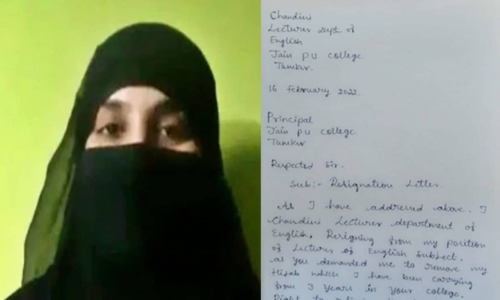 Chandini
Lecturer Dept of
English
Jain PU college
Tumkur.
16 February 2022.
Principal
Jain PU college
Tumkur
Respected Sir.
Sub:- Resignation Letter.
As I have addressed above. I
Chandini Lecturer department of
English, Resigning from my position
of Lecturer of English Subject.
as you demanded me to remove my
Hijab which I have been carrying
from 3 years in your college.
Right to